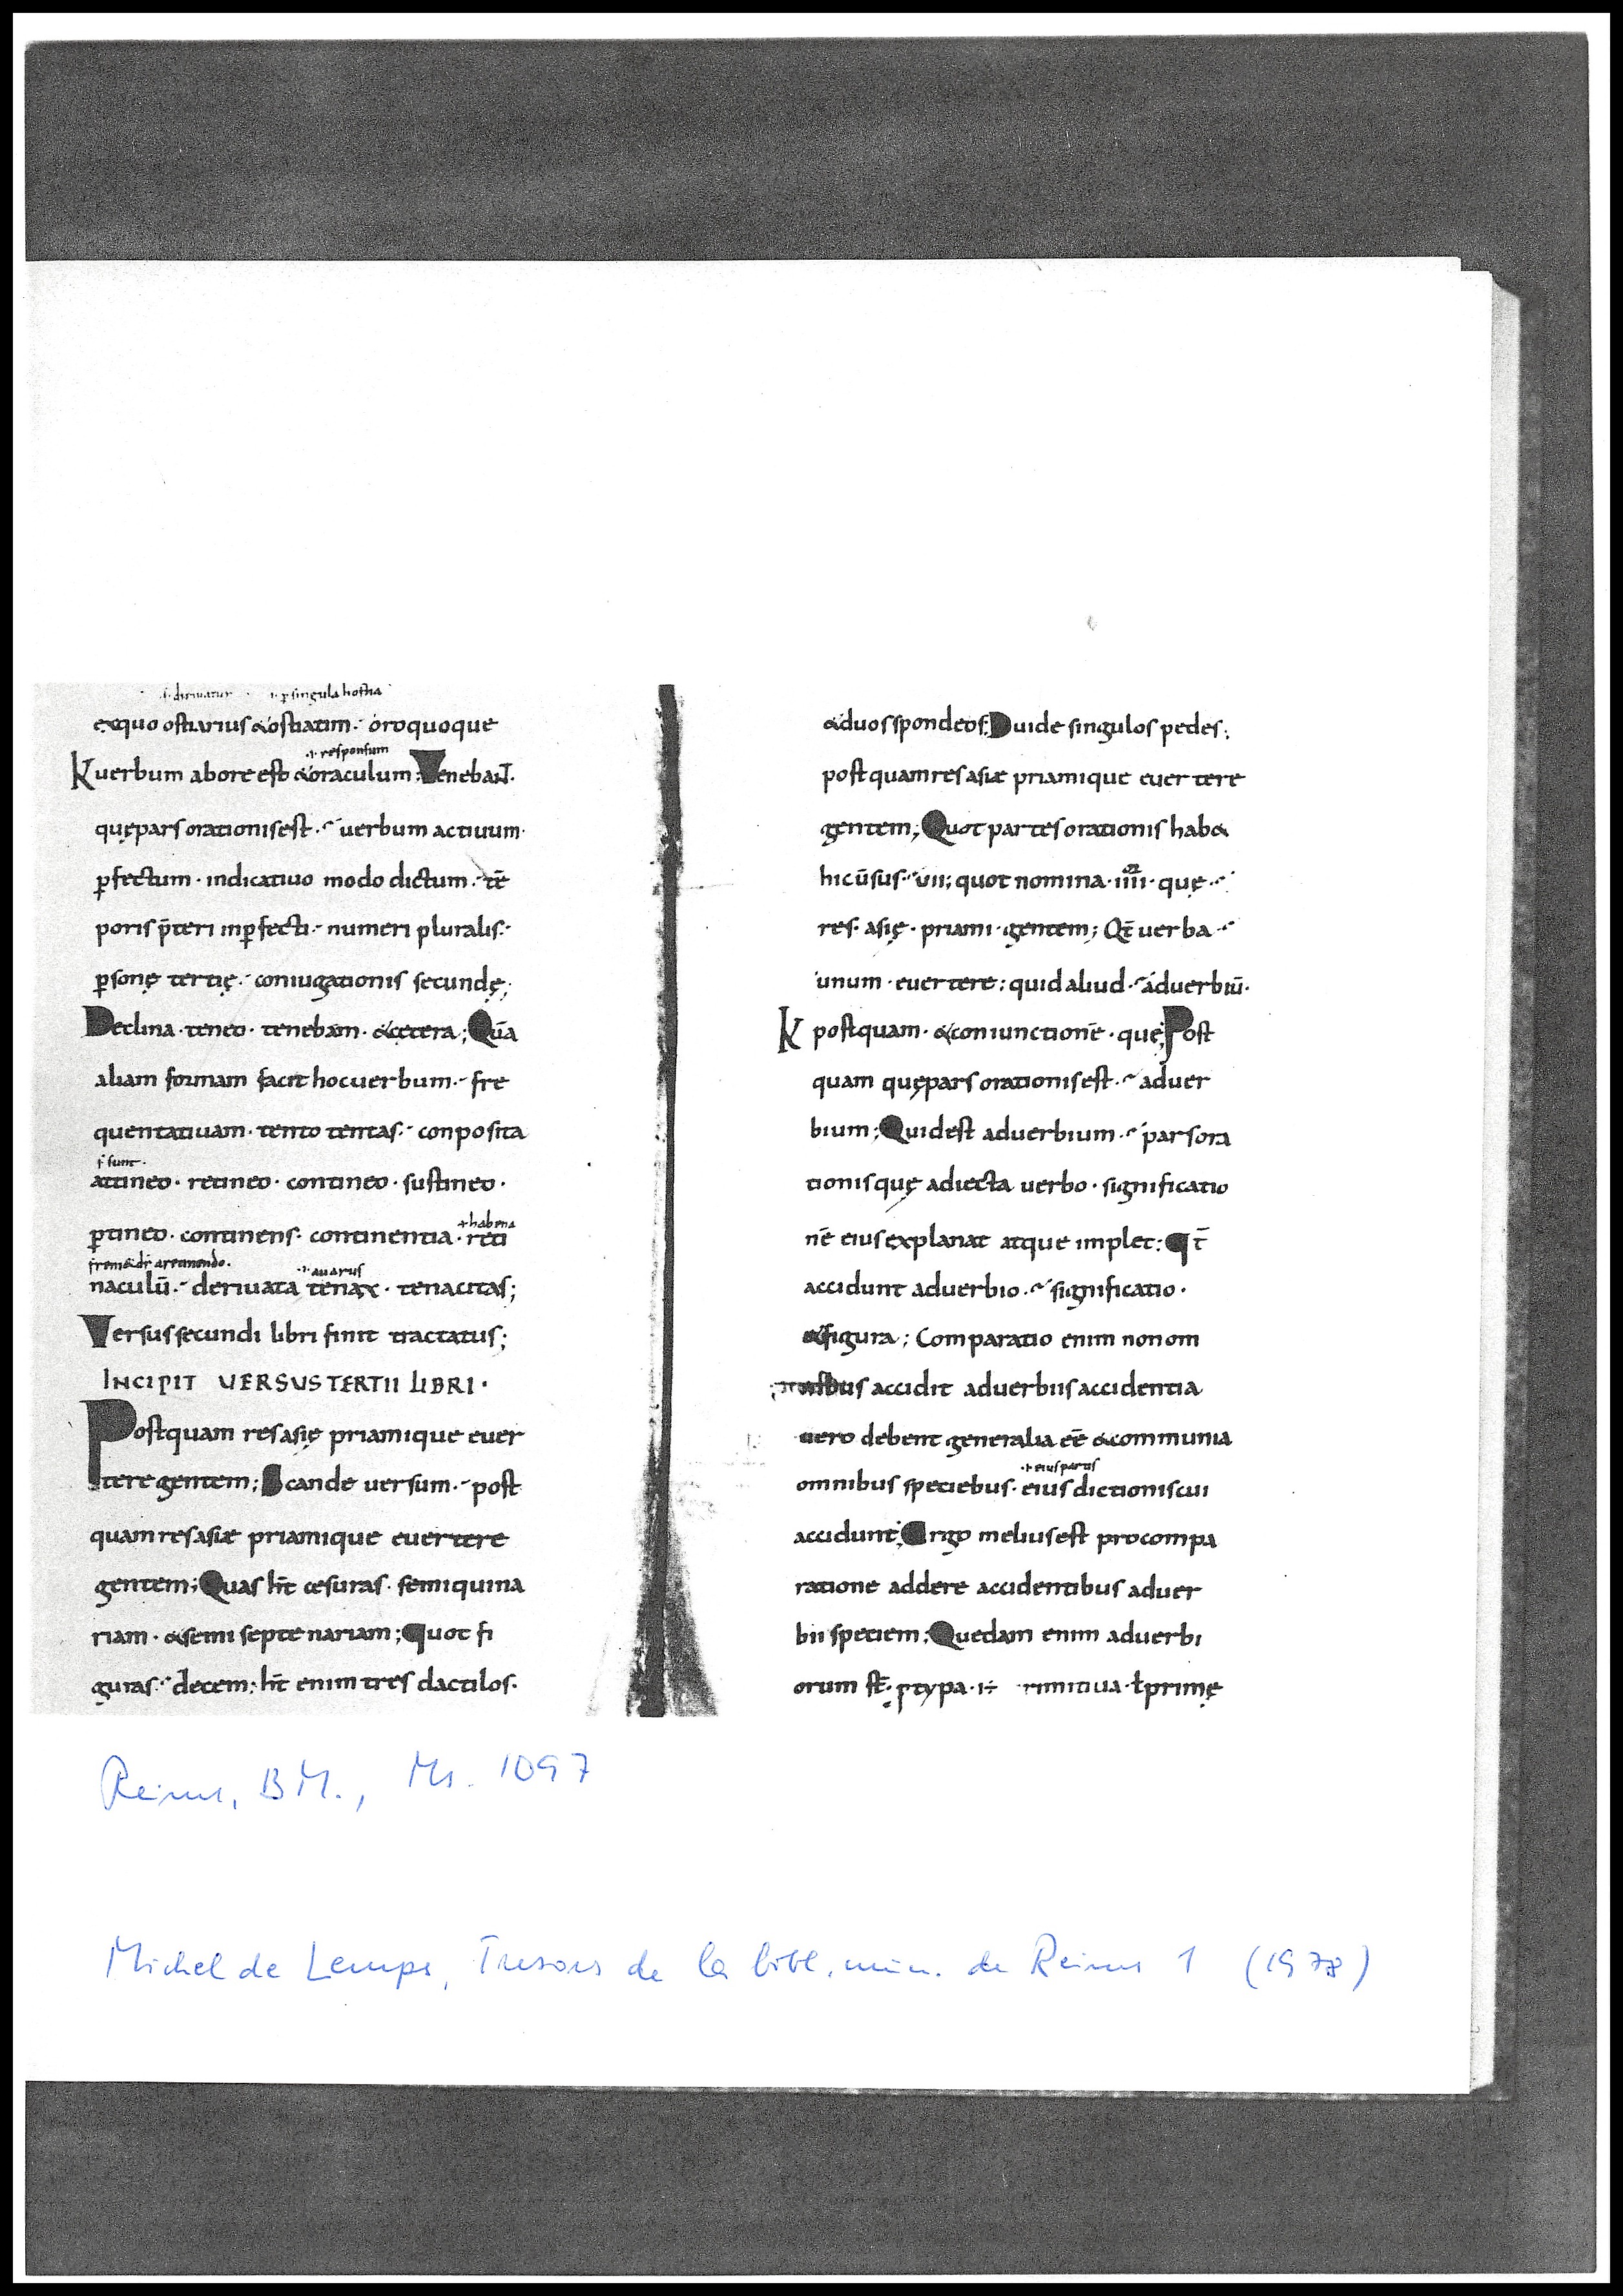 .i. diriuatur .i. ꝑ singula hostia
exquo ostiarius &ostiatim. oroquoque
K uerbum abore est &oraculum; Venebant.
.i. responsum
quępars orationisest. uerbum actiuum.
ꝑfectum. indicatiuo modo dictum. tē
poris p̄teri inꝑfecti. numeri pluralis.
ꝑsonę tertię. coniugationis secundę;
Declina. teneo. tenebam. &cetera; Quā
aliam formam facit hocuerbum. fre
quentatiuam. tento tentas. conposita
.i. sunt.
attineo. retineo. contineo. sustineo.
ꝑtineo. continens. continentia. reti
.i. habena
naculū. deriuata tenax. tenacitas;
.i. auarus
Versussecundi libri finit tractatus;
INCIPIT UERSUS TERTII LIBRI.
Postquam resasię priamique euer
tere gentem; Scande uersum. post
quamresasiæ priamique euertere
gentem; Quas h̄t cesuras. semiquina
riam. &semi septenariam; quot fi
guras. decem; h̄t enim tres dactilos.
&duosspondeos; Diuide singulos pedes;
postquamres asiæ priamique euertere
gentem; Quot partesorationis hab&
hicūsus. uii; quot nomina. iiii. quę.
res. asię. priami. gentem; Qt̄ uerba.
unum. euertere; quid aliud. aduerbiū.
K postquam. &coniunctionē. que; Post
quam quępars orationisest. aduer
bium; Quidest aduerbium. parsora
tionisquę adiecta uerbo. significatio
nē eiusexplanat atque implet; qt̄
accidunt aduerbio. significatio.
&figura; Comparatio enim nonom
nibus accidit aduerbiisaccidentia
uero debent generalia eē &communia
.i. eius partis
omnibus speciebus. eius dictioniscui
accidunt; Ergo meliusest procompa
ratione addere accidentibus aduer
bii speciem; Quedam enim aduerbi
orum st̄. ptypa. i÷ rimitiua. ł primę
Reims, BM., Ms. 1097
Michel de Lemps, Tresors de la bibl. mun. de Reims 1 (1978)